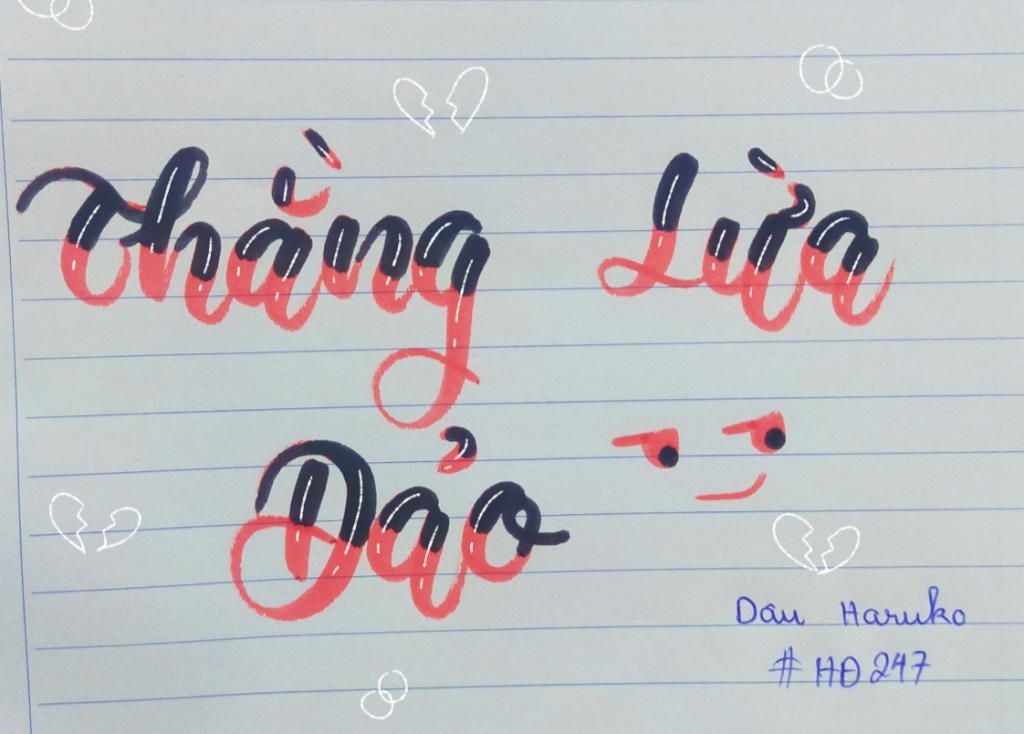 Thằng Lừa
Đảo
Dâu Haruko
#HĐ247